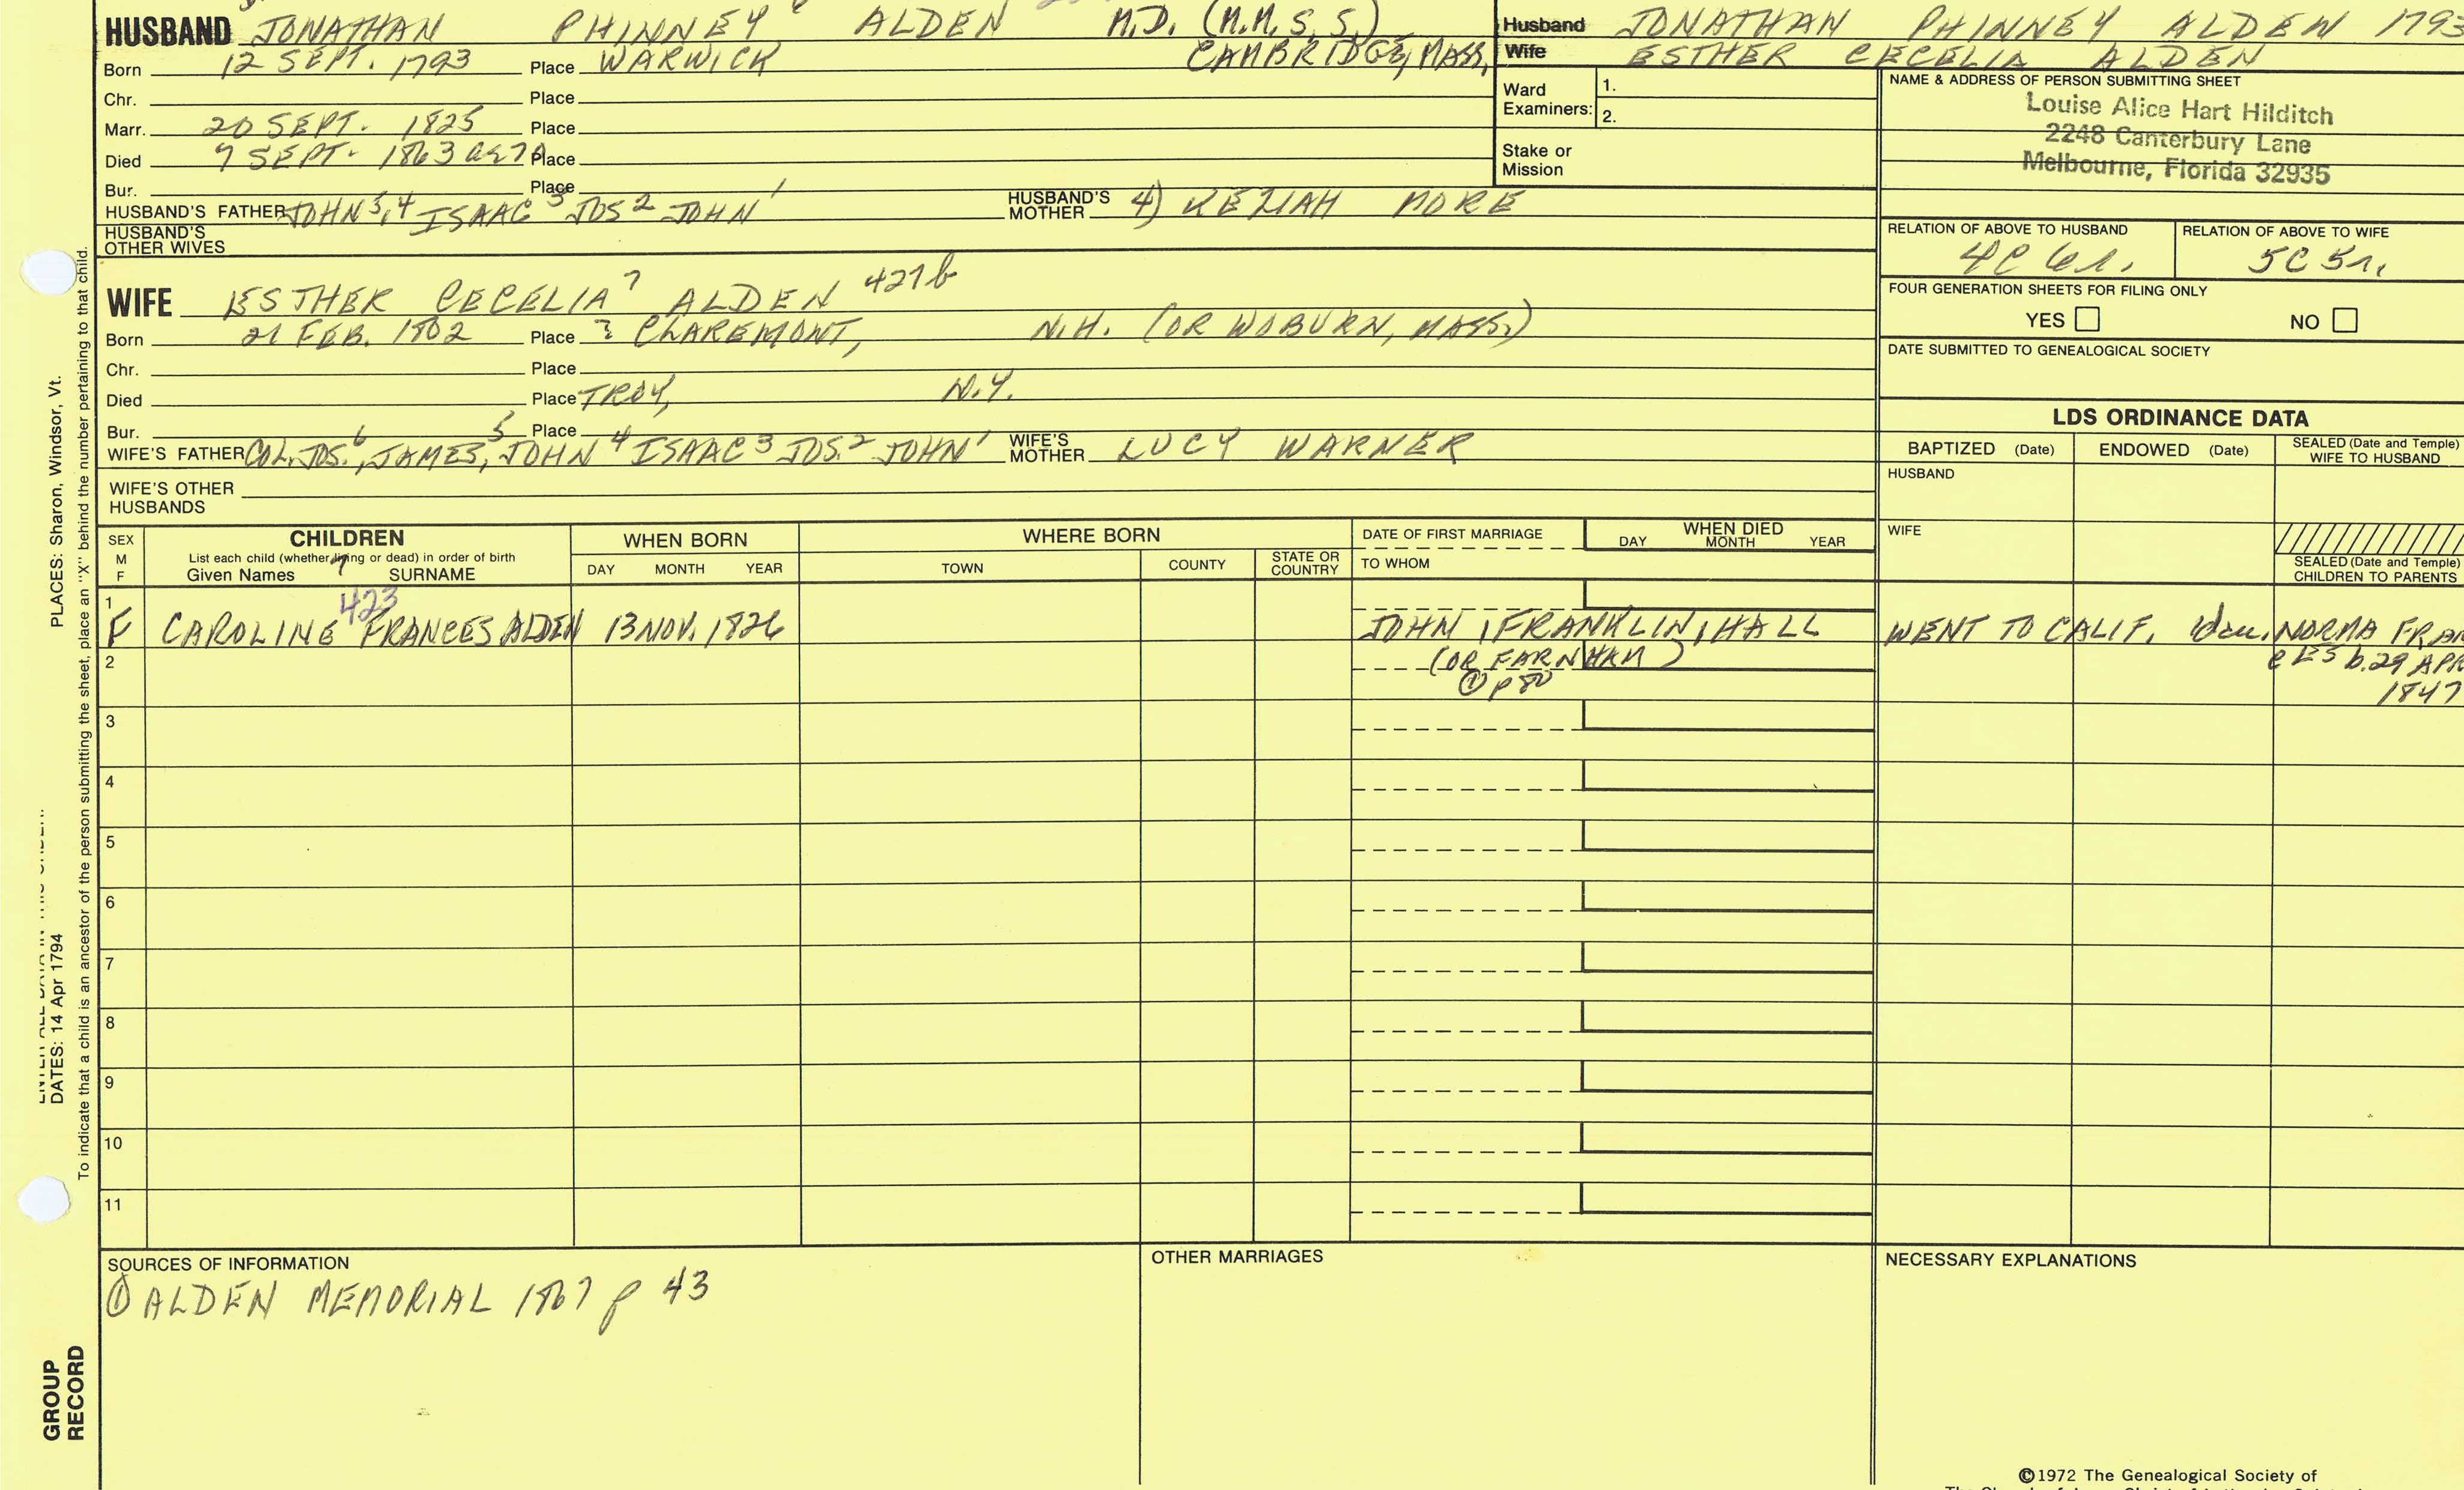 HUSBAND JONATHAN PHINNEY ALDEN M.D. (M.M.S.S.)
Born 12 SEPT. 1793 Place WARWICK CAMBRIDGE, MASS,
Chr. Place
Marr. 20 SEPT. 1825 Place
Died 7 SEPT. 1863 ae 70 Place
Bur. Place
HUSBAND'S FATHER JOHN 5,4 ISAAC 3 JOS 2 JOHN 1 HUSBAND'S MOTHER 4) KEZIAH MORE
HUSBAND'S OTHER WIVES
Husband JONATHAN PHINNEY ALDEN 1793
Wife ESTHER CECELIA ALDEN
Ward Examiners: 1.
2.
Stake or Mission
NAME & ADDRESS OF PERSON SUBMITTING SHEET
Louise Alice Hart Hilditch
2248 Canterbury Lane
Melbourne, Florida 32935
RELATION OF ABOVE TO HUSBAND RELATION OF ABOVE TO WIFE
4C 6r. 5C 5r.
FOUR GENERATION SHEETS FOR FILING ONLY
YES NO
DATE SUBMITTED TO GENEALOGICAL SOCIETY
WIFE ESTHER CECELIA 7 ALDEN 427b
Born 21 FEB. 1802 Place ? CLAREMONT, N.H. (OR WOBURN, MASS.)
Chr. Place
Died Place TROY, N.Y.
Bur. Place
WIFE'S FATHER COL. JOS. 6, JAMES 5, JOHN 4 ISAAC 3 JOS. 2 JOHN 1 WIFE'S MOTHER LUCY WARNER
WIFE'S OTHER HUSBANDS
LDS ORDINANCE DATA
BAPTIZED (Date) ENDOWED (Date) SEALED (Date and Temple) WIFE TO HUSBAND
HUSBAND
WIFE
SEALED (Date and Temple) CHILDREN TO PARENTS
SEX M F CHILDREN WHEN BORN WHERE BORN DATE OF FIRST MARRIAGE WHEN DIED
List each child (whether living or dead) in order of birth
Given Names 7 SURNAME DAY MONTH YEAR TOWN COUNTY STATE OR COUNTRY TO WHOM DAY MONTH YEAR
1 423
F CAROLINE FRANCES ALDEN 13 NOV. 1826 JOHN FRANKLIN HALL WENT TO CALIF. 1 dau. NORMA FRAN
(OR FARNHAM) b. 29 APR
① p 80 1847
2
3
4
5
6
7
8
9
10
11
SOURCES OF INFORMATION
① ALDEN MEMORIAL 1867 p 43
OTHER MARRIAGES
NECESSARY EXPLANATIONS
©1972 The Genealogical Society of
PLACES: Sharon, Windsor, Vt.
DATES: 14 Apr 1794
To indicate that a child is an ancestor of the person submitting the sheet, place an "X" behind the number pertaining to that child.
GROUP
RECORD